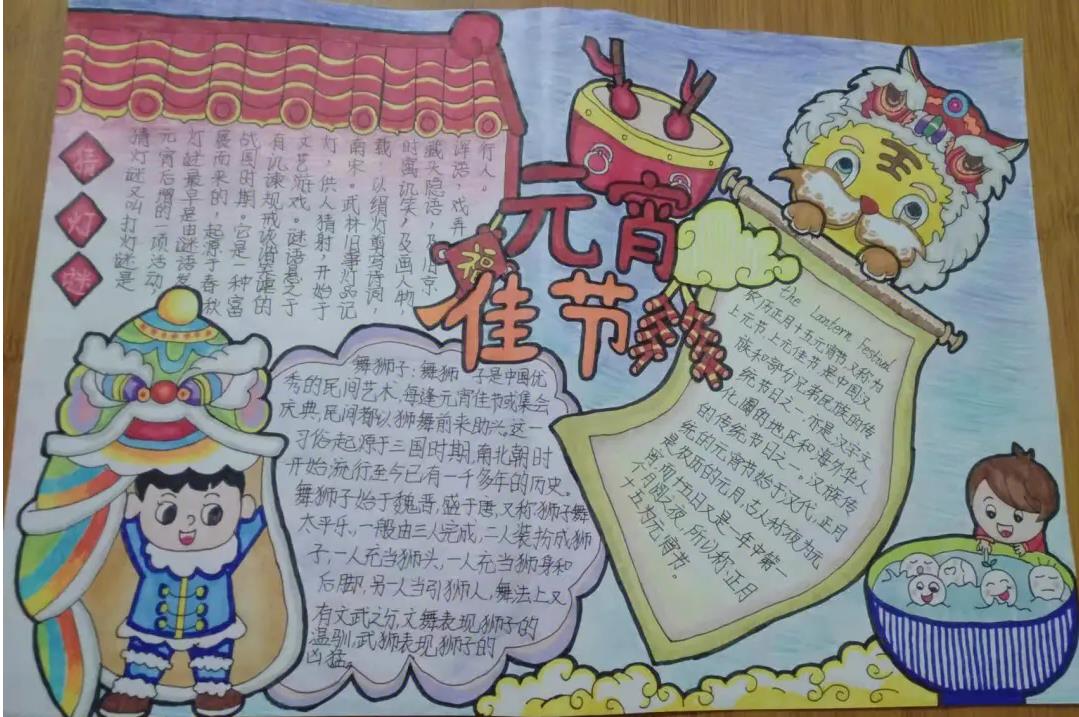 元宵
佳节
福
猜
灯
谜
猜灯谜又叫打灯谜是
元宵后增的一项活动
灯谜最早是由谜语发
展而来的，起源于春秋
战国时期。它是一种富
有讥谏规戒诙谐笑谑的
文艺游戏。谜语悬之于
灯，供人猜射，开始于
南宋。武林旧事灯品记
载，以绢灯剪写诗词，
时寓讥笑，及画人物，
藏头隐语，及旧京
诨语，戏弄
行人。
舞狮子：舞狮子是中国优
秀的民间艺术，每逢元宵佳节或集会
庆典，民间都以狮舞前来助兴。这一
习俗起源于三国时期，南北朝时
开始流行至今已有一千多年的历史。
舞狮子始于魏晋，盛于唐，又称狮子舞
太平乐，一般由三人完成，二人装扮成狮
子，一人充当狮头，一人充当狮身和
后脚，另一人当引狮人，舞法上又
有文武之分，文舞表现狮子的
温驯，武狮表现狮子的
凶猛。
王
the Lantern Festival
农历正月十五元宵节又称为
上元节，上元佳节，是中国汉
族和部分兄弟民族的传
统节日之一，亦是汉字文
化圈的地区和海外华人
的传统节日之一。汉族传
统的元宵节始于汉代，正月
是农历的元月，古人称夜为元
宵，而十五日又是一年中第一
个月圆之夜，所以称正月
十五为元宵节。